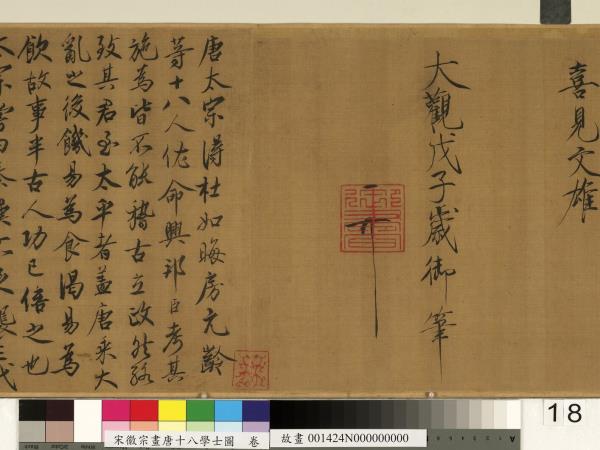 喜見文雄
大觀戊子歲御筆
御書
唐太宗得杜如晦房元齡
等十八人佐命興邦臣考其
施為皆不能稽古立政然
致其君至太平者蓋唐乘大
亂之後饑易為食渴易為
飲故事半古人功已倍之也
18
宋徽宗畫唐十八學士圖 卷
故畫 001424N000000000
A